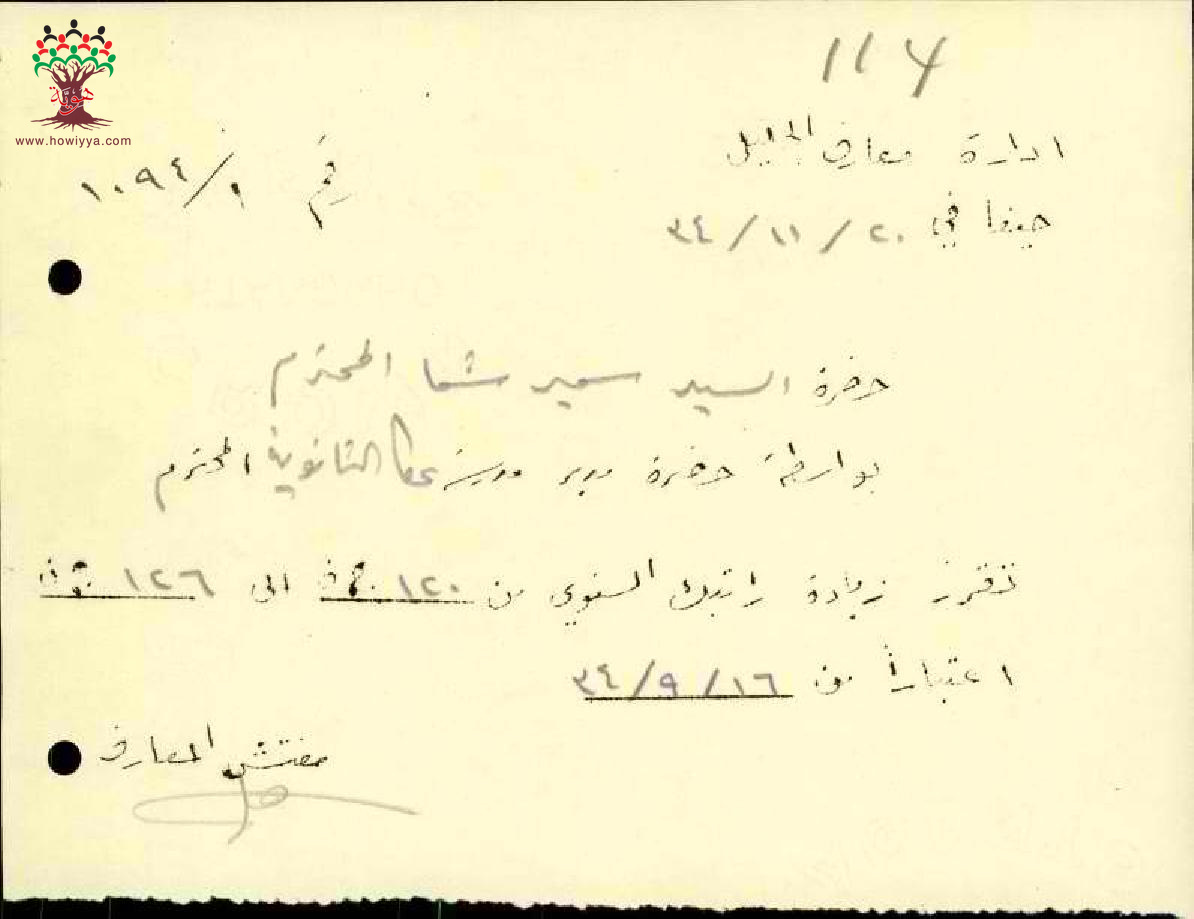 هوية
www.howiyya.com
114
ادارة معارف الجليل
رقم ١٠٩٤/١
حيفا في ٢٠/١١/٣٤
حضرة السيد سمير شما المحترم
بواسطة حضرة مدير مدرسة عكا الثانوية المحترم
تقرر زيادة راتبك السنوي من ١٢٠ الى ١٢٦
اعتباراً من ١٦/٩/٣٤
مفتش المعارف